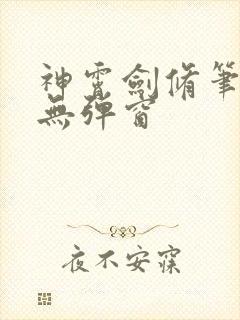 神霄劍脩筆
無彈窗
夜不安寐